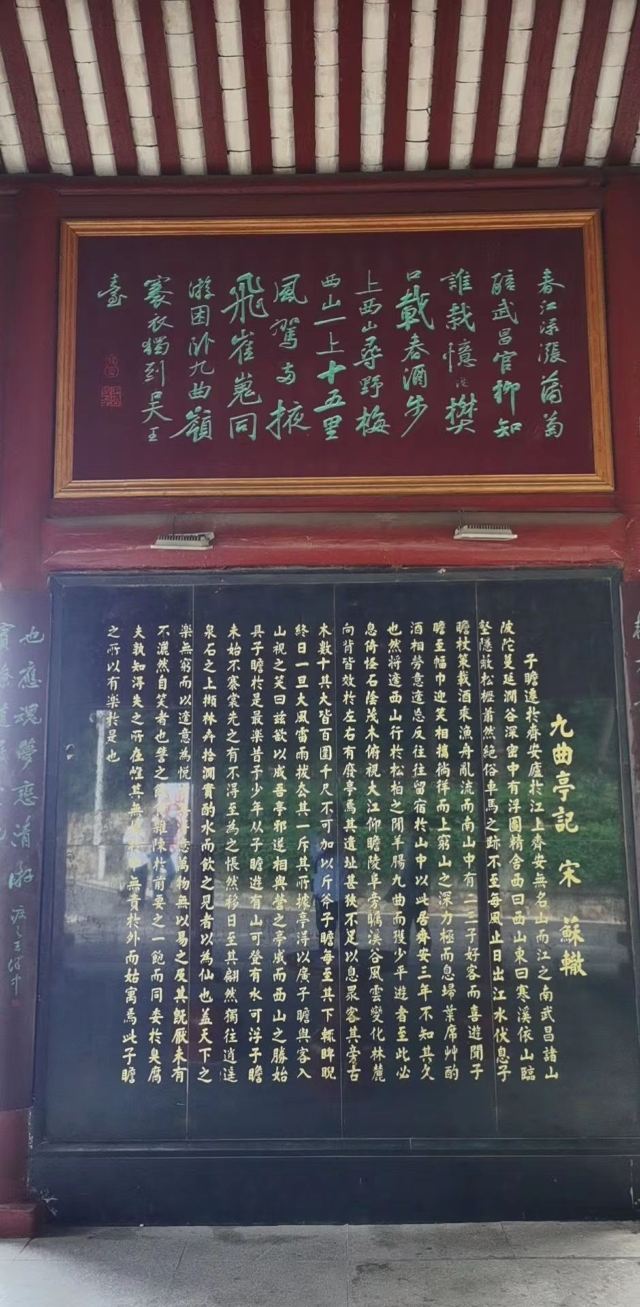 春江渌漲蒲萄
醅武昌官柳知
誰栽憶從樊
口載春酒步
上西山尋野梅
西山一上十五里
風駕兩掖
飛崔嵬同
游困卧九曲嶺
褰衣獨到吴王
臺
九曲亭記 宋 蘇轍
子瞻遷於齊安廬於江上齊安無名山而江之南武昌諸山
陂陁蔓延澗谷深密中有浮圖精舍西曰西山東曰寒溪依山臨
壑隱蔽松櫪蕭然絕俗車馬之跡不至每風止日出江水伏息子
瞻杖策載酒乘漁舟亂流而南山中有二三子好客而喜遊聞子
瞻至幅巾迎笑相攜徜徉而上窮山之深力極而息埽葉席艸酌
酒相勞意適忘反往往留宿於山中以此居齊安三年不知其久
也然將適西山行於松柏之間羊腸九曲而獲少平遊者至此必
息倚怪石陰茂木俯視大江仰瞻陵阜旁矚溪谷風雲變化林麓
向背皆效於左右有廢亭焉其遺址甚狹不足以息衆客其旁古
木數十其大皆百圍千尺不可加以斤斧子瞻每至其下輒睥睨
終日一旦大風雷雨拔去其一斥其所據亭得以廣子瞻與客入
山視之笑曰兹欲以成吾亭邪遂相與營之亭成而西山之勝始
具子瞻於是最樂昔予少年從子瞻遊有山可登有水可浮子瞻
未始不褰裳先之有不得至為之悵然移日至其翩然獨往逍遥
泉石之上擷林卉拾澗實酌水而飲之見者以為仙也蓋天下之
樂無窮而以適意為悅意萬物無以易之及其既厭未有
不灑然自笑者也譬之雜陳於前要之一飽而同委於臭腐
夫孰知得失之所在惟其無無責於外而姑寓焉此子瞻
之所以有樂於是也
也應魂夢戀清游